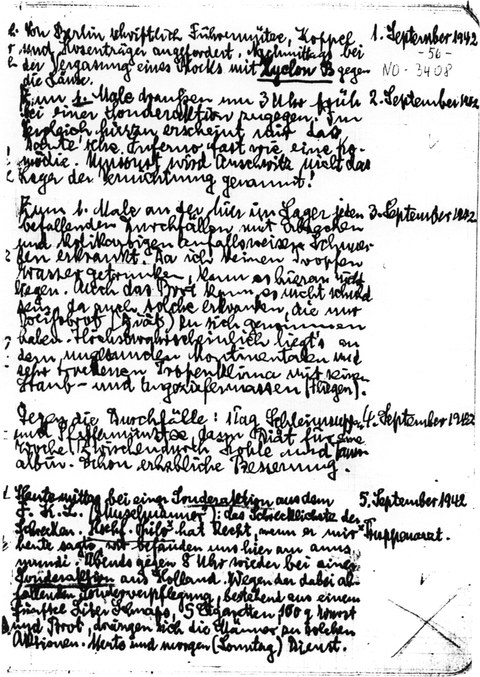 Von Berlin schriftlich Führermütze, Koppel 1. September 1942
und Hosenträger angefordert. Nachmittags bei - 56 -
der Vergasung eines Blocks mit Zyclon B gegen NO - 3408
die Läuse.
Zum 1. Male draußen um 3 Uhr früh 2. September 1942
bei einer Sonderaktion zugegen. Im
Vergleich hierzu erscheint mir das
Dante'sche Inferno fast wie eine Ko-
mödie. Umsonst wird Auschwitz nicht das
Lager der Vernichtung genannt!
Zum 1. Male an den hier im Lager jeden 3. September 1942
befallenden Durchfällen mit Erbrechen
und kolikartigen anfallsweisen Schmer-
zen erkrankt. Da ich keinen Tropfen
Wasser getrunken, kann es hieran nicht
liegen. Auch das Brot kann es nicht schuld
sein, da auch solche erkranken, die nur
Weißbrot (Diät) zu sich genommen
haben. Höchstwahrscheinlich liegt's an
dem ungesunden kontinentalen und
sehr trockenen Tropenklima mit seinen
Staub- und Ungeziefermassen (Fliegen).
Gegen die Durchfälle: 1 Tag Schleimsuppen 4. September 1942
und Pfefferminztee, dann Diät für eine
Woche. Zwischendurch Kohle und Tann-
albin. Schon erhebliche Besserung.
Heute mittag bei einer Sonderaktion aus dem 5. September 1942
F. K. L. (Muselmänner): das Schrecklichste der
Schrecken. Hschf. Thilo hat Recht, wenn er mir Truppenarzt.
heute sagte, wir befänden uns hier am anus
mundi. Abends gegen 8 Uhr wieder bei einer
Sonderaktion aus Holland. Wegen der dabei ab-
fallenden Sonderverpflegung, bestehend aus einem
fünftel Liter Schnaps, 5 Zigaretten, 100 g Wurst
und Brot, drängen sich die Männer zu solchen
Aktionen. Heute und morgen (Sonntag) Dienst.